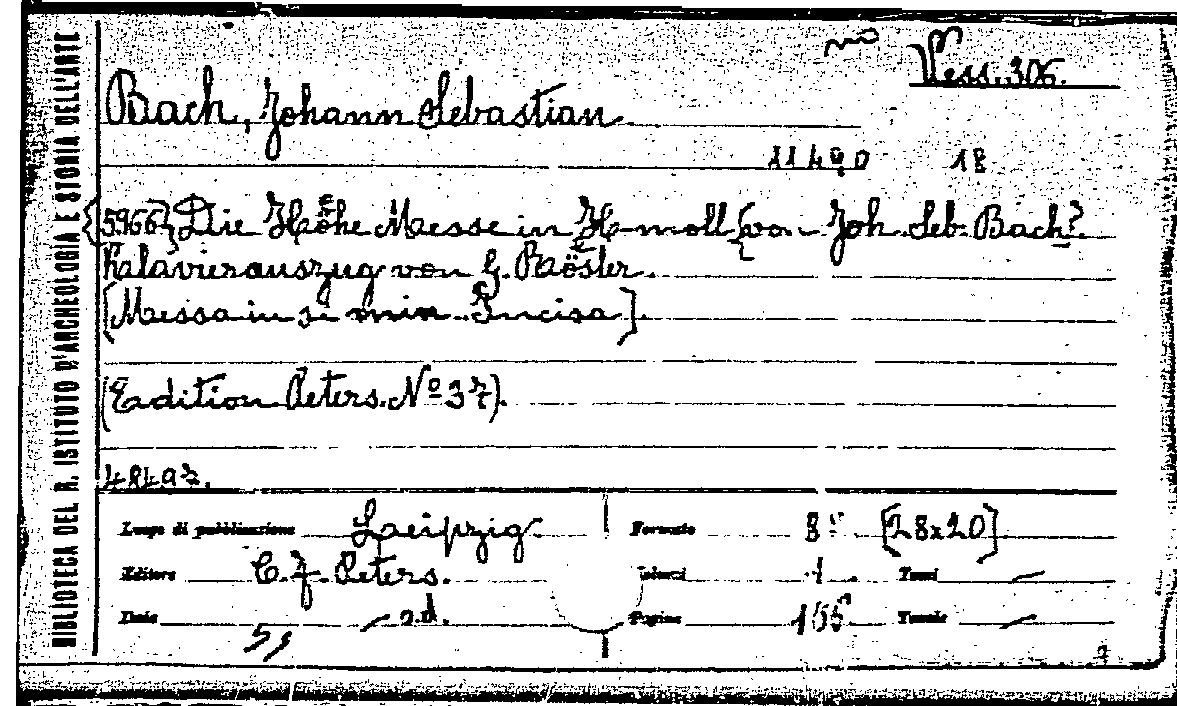 BIBLIOTECA DEL R. ISTITUTO D'ARCHEOLOGIA E STORIA DELL'ARTE
Vess. 306.
Bach, Johann Sebastian.
11490 18
{5966} Die Hohe Messe in H-moll {von Joh. Seb. Bach}.
Kalavierauszug von G. Rösler.
[Messa in si min. Incisa].
(Edition Peters. Nº 37).
48497.
Luogo di pubblicazione Laeipzig. Formato 8º [28x20]
Editore C. F. Peters. Volumi 1. Tomi —
Data — s.d. Pagine 155 Tavole —